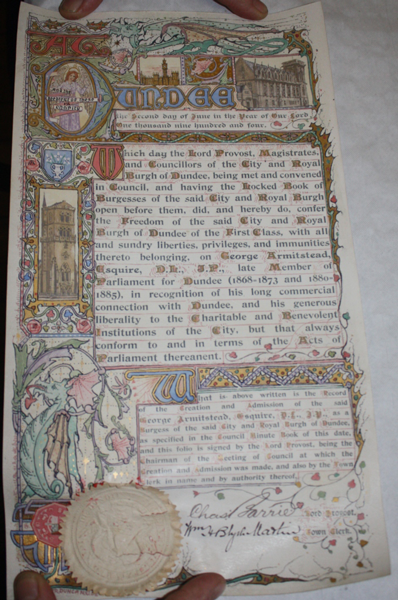 At
Dundee
the Second day of June in the Year of Our Lord
One thousand nine hundred and four.
Which day the Lord Provost, Magistrates,
and Councillors of the City and Royal
Burgh of Dundee, being met and convened
in Council, and having the Locked Book of
Burgesses of the said City and Royal Burgh
open before them, did, and hereby do, confer
the Freedom of the said City and Royal
Burgh of Dundee of the First Class, with all
and sundry liberties, privileges, and immunities
thereto belonging, on George Armitstead,
Esquire, D.L., J.P., late Member of
Parliament for Dundee (1868-1873 and 1880-
1885), in recognition of his long commercial
connection with Dundee, and his generous
liberality to the Charitable and Benevolent
Institutions of the City, but that always
conform to and in terms of the Acts of
Parliament thereanent.
What is above written is the Record
of the Creation and Admission of the said
George Armitstead, Esquire, D.L., J.P., as a
Burgess of the said City and Royal Burgh of Dundee,
as specified in the Council Minute Book of this date,
and this folio is signed by the Lord Provost, being the
Chairman of the Meeting of Council at which the
Creation and Admission was made, and also by the Town
Clerk in name and by authority thereof.
Chas Barrie Lord Provost.
Wm H Blyth Martin Town Clerk.